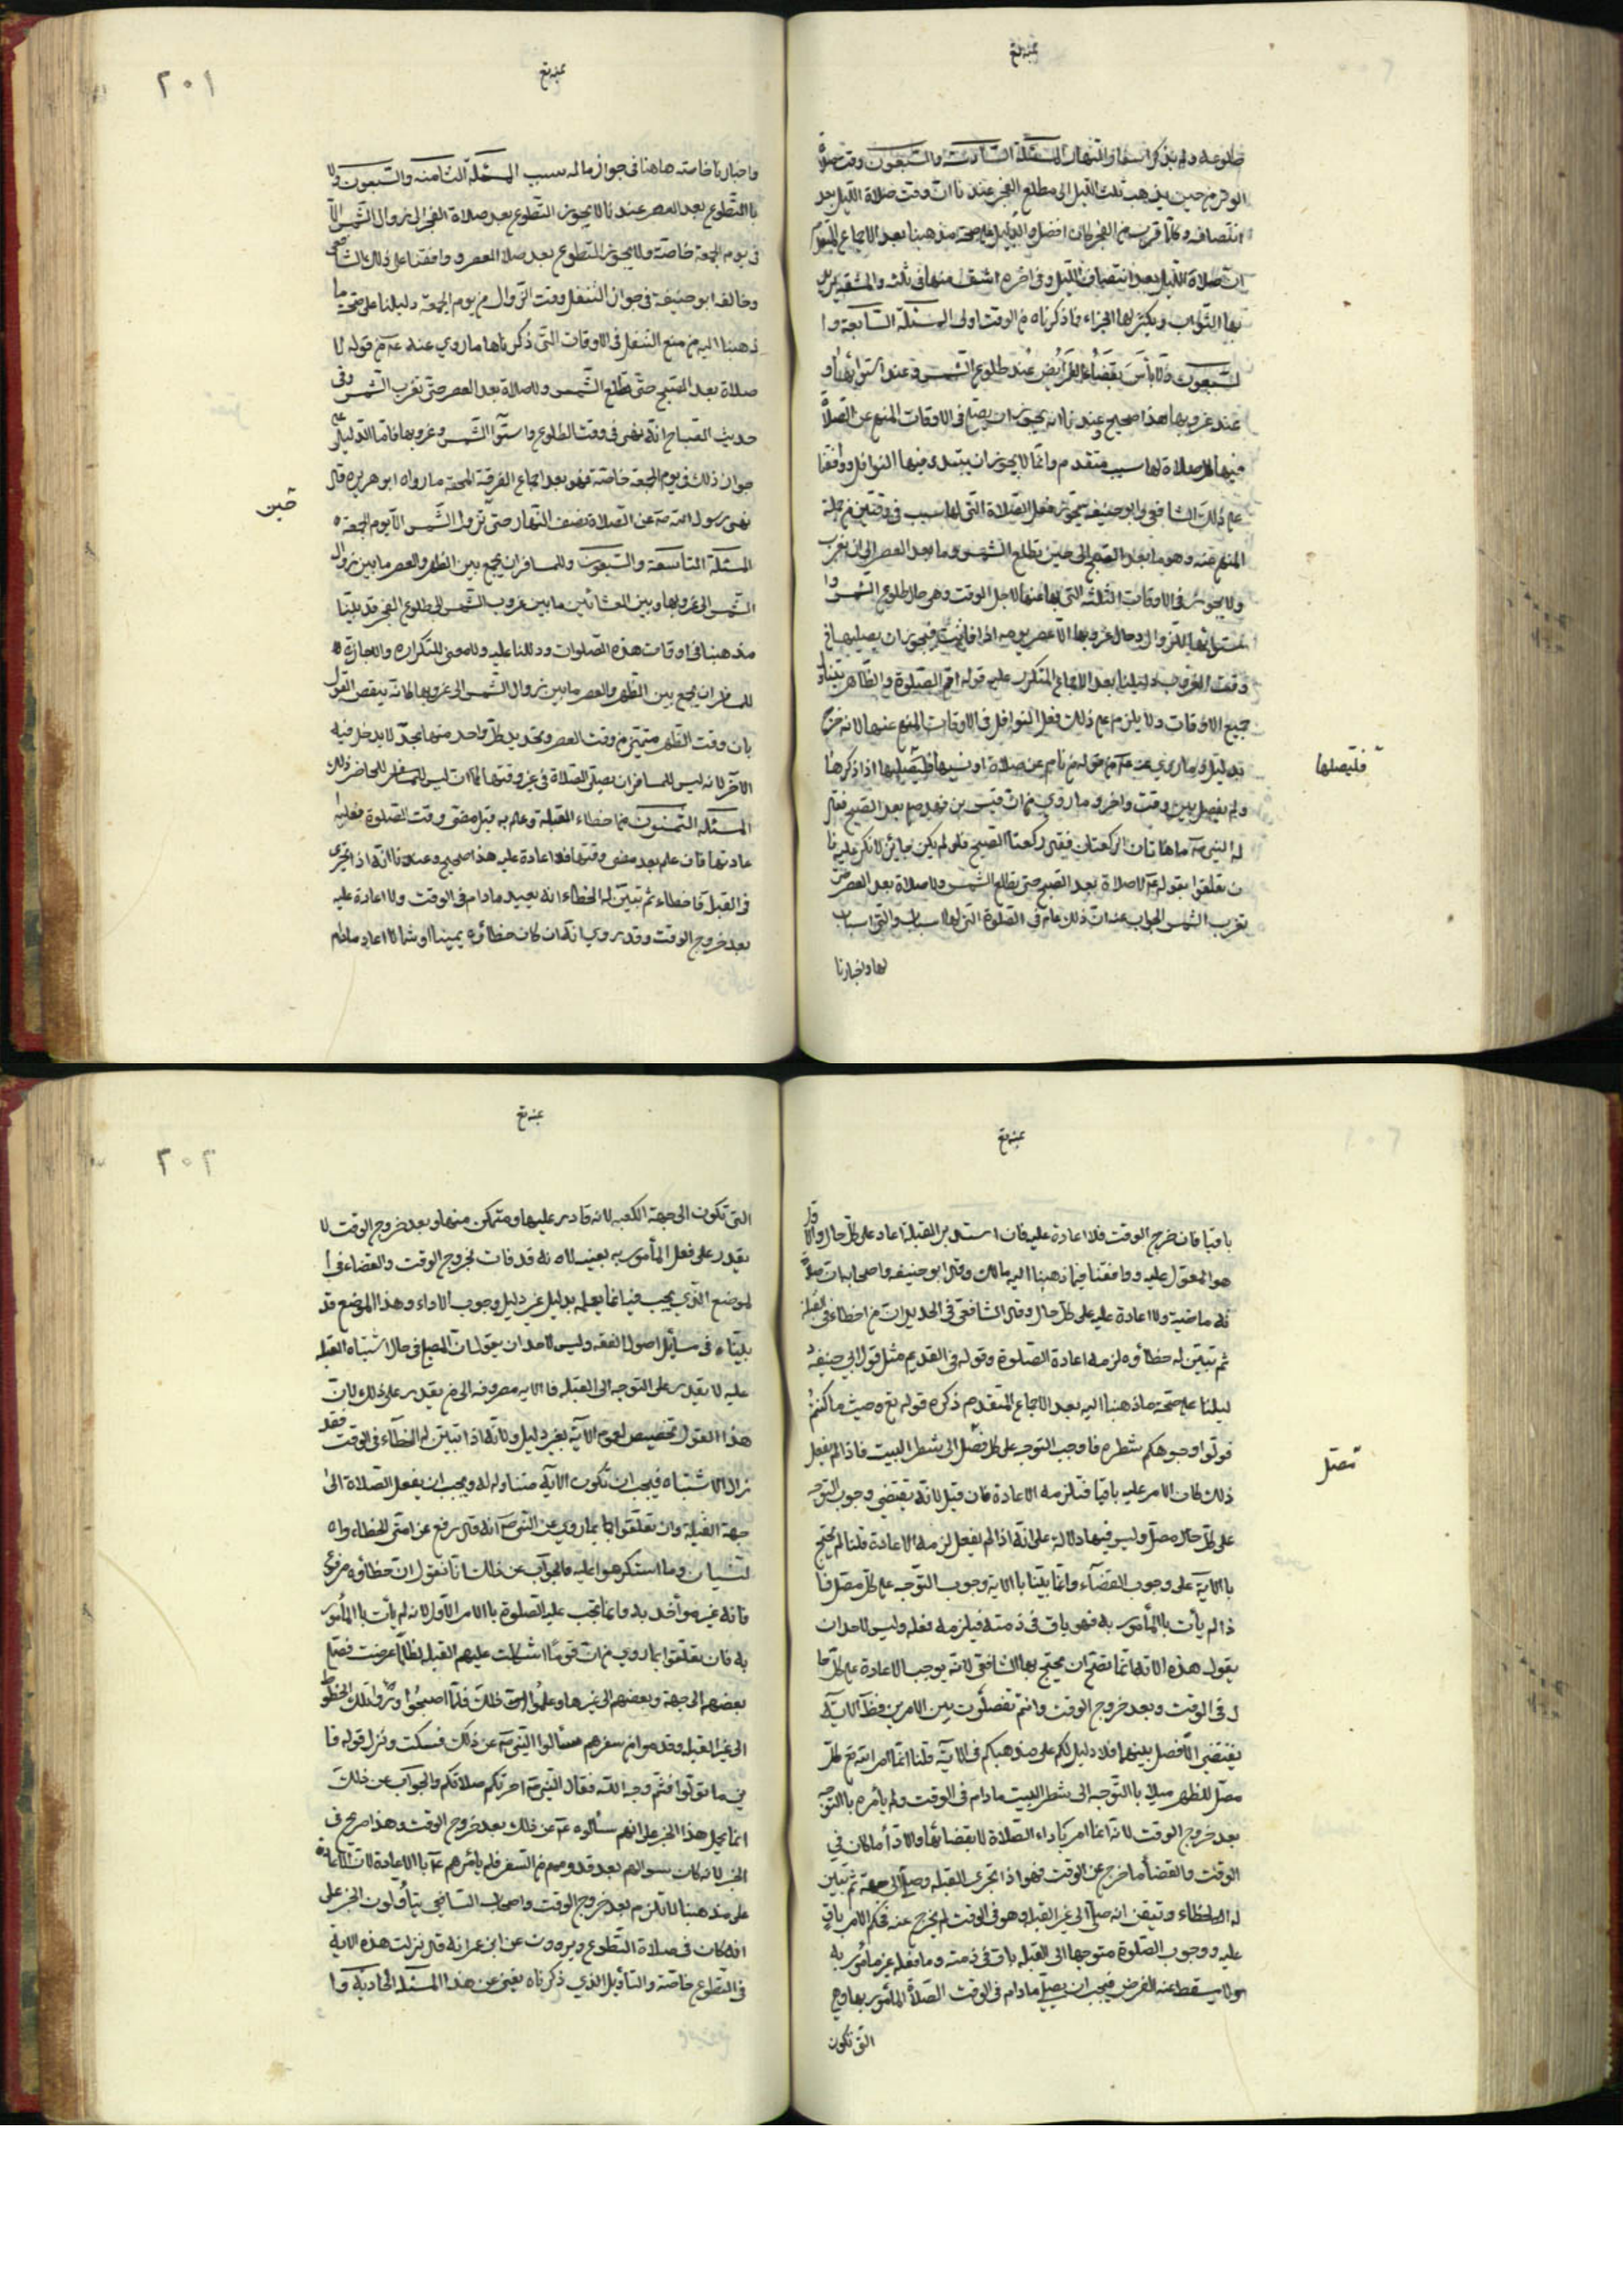 طلوعه ولم يذكر اسما والنهار المسئلة السادسة والسبعون وقت صلاة
الوتر من حين يذهب ثلث الليل الى مطلع الفجر عندنا ان وقت صلاة الليل بعد
انتصافه وكلما قرب من الفجر كان افضل والدليل على صحة مذهبنا بعد الاجماع المتقدم
ان صلاة الليل بعد انتصاف الليل وفي اخره اشق منها في ثلثه والمشقة يزيد
بها الثواب ويكثر لها الجزاء فما ذكرناه من الوقت اولى المسئلة السابعة وا
لسبعون ولا باس بقضاء الفرايض عند طلوع الشمس وعند استوائها و
عند غروبها هذا صحيح وعندنا انه يجوز ان يصلى في الاوقات المنع عن الصلاة
فيها كل صلاة لها سبب متقدم وانما لا يجوز ان يبتدى فيها النوافل ووافقنا
على ذلك الشافعي وابو حنيفة يجوز فعل الصلاة التي لها سبب في وقتين من جملة
المنع عنه وهو ما بعد الصبح الى حين يطلع الشمس وما بعد العصر الى ان يغرب
ولا يجوز في الاوقات الثلثة التي نهى عنها لاجل الوقت وهي حال طلوع الشمس وا
ستوائها للزوال وحال غروبها الا عصر يومه اذا فاتت فيجوز ان يصليها في
وقت الغروب دليلنا بعد الاجماع المتكرر عليه قوله اقم الصلوة والظاهر يتناول
جميع الاوقات ولا يلزم على ذلك فعل النوافل في الاوقات المنع عنها لانه خرج
بدليل وما روي عنه ع م من قوله من نام عن صلاة او نسيها فليصليها اذا ذكرها
فليصلها
ولم يفصل بين وقت واخر وما روي من ان قيس بن فهد صلى بعد الصبح فقال
له النبي ص ما هاتان الركعتان فقال ركعتا الصبح فلو لم يكن جائز لانكر عليه فا
ن تعلقوا بقوله ع لا صلاة بعد الصبح حتى يطلع الشمس ولا صلاة بعد العصر حتى
تغرب الشمس الجواب عنه ان ذلك عام في الصلوة التي لها اسباب والتي لا سباب
لها واخبارنا
٢٠١
واخبارنا خاصة هاهنا في جواز ماله سبب المسئلة الثامنة والسبعون ولا
باالتطوع بعد العصر عندنا لا يجوز التطوع بعد صلاة الفجر الى زوال الشمس الا
في يوم الجمعة خاصة ولا يجوز التطوع بعد صلاة العصر ووافقنا على ذلك الشافعي
وخالف ابو حنيفة في جواز التنفل وقت الزوال من يوم الجمعة دليلنا على صحة ما
ذهبنا اليه من منع التنفل في الاوقات التي ذكرناها ما روي عنه ع م من قوله لا
صلاة بعد الصبح حتى تطلع الشمس ولا صلاة بعد العصر حتى تغرب الشمس وفي
حديث الصباح انه نهى في وقت الطلوع واستوآ الشمس وغروبها فاما الدليل على
جواز ذلك في يوم الجمعة خاصة فهو بعد اجماع الفرقة المحقة ما رواه ابو هريره قال
نهى رسول الله ص عن الصلاة نصف النهار حتى تزول الشمس الا يوم الجمعة
المسئلة التاسعة والسبعون وللمسافر ان يجمع بين الظهر والعصر ما بين زوال
الشمس الى غروبها وبين العشائين ما بين غروب الشمس الى طلوع الفجر قد بينا
مذهبنا في اوقات هذه الصلوات ودللنا عليه ولا معنى للتكراره والعجازة
للمسافر ان يجمع بين الظهر والعصر ما بين زوال الشمس الى غروبها لانه ينقض القول
بان وقت الظهر متميز من وقت العصر وتحديد كل واحد منهما بحد لا يدخل فيه
الآخر لانه ليس للمسافر ان يصلى الصلاة في غير وقتها كما ان ليس للحاضر ذلك
المسئلة الثمنون فما خطاء القبلة وعلم به قبل مضى وقت الصلوة فعليه ا
عادتها فان علم بعد مضى وقتها فلا اعادة عليه هذا صحيح وعندنا انه اذا تحرى
في القبلة فاخطاء ثم تبين له الخطاء انه يعيد ما دام في الوقت ولا اعادة عليه
بعد خروج الوقت وقد روي انه ان كان خطأؤه يمينا او شمالا اعاد مادام
باقيا فان خرج الوقت فلا اعادة عليه فان استدبر القبلة اعاد على كل حال والاول
هو المعول عليه ووافقنا فيما ذهبنا اليه مالك وقال ابو حنيفة واصحابه ان صلا
ته ماضية ولا اعادة عليه على كل حال وقال الشافعي في الجديد ان من اخطاء في القبلة
ثم تبين له خطأؤه لزمه اعادة الصلوة وقوله في القديم مثل قول ابي حنيفه د
ليلنا على صحة ما ذهبنا اليه بعد الاجماع المتقدم ذكره قوله تع وحيث ما كنتم
فولوا وجوهكم شطره فاوجب التوجه على كل مصل الى شطر البيت فاذا لم يفعل
مصل
ذلك كان الامر عليه باقيا فتلزمه الاعادة فان قيل لانه يقتضي وجوب التوجه
على كل حال مصل وليس فيها دلالة على انه اذا لم يفعل لزمه الاعادة قلنا لم نحتج
باالاية على وجوب القضآء وانما بينا باالاية وجوب التوجه على كل مصل فا
ذا لم يأت باالمأمور به فهو باق في ذمته فيلزمه فعله وليس لاحد ان
يقول هذه الاية انما تصح ان يحتج بها الشافعي لانه يوجب الاعادة على كل حا
ل في الوقت وبعد خروج الوقت وانتم تفصلون بين الامرين فظآ الاية
يقتضي الا فصل بينهما فلا دليل لكم على مذهبكم في الاية قلنا انما امر الله تع كل
مصل للظهر مثلا باالتوجه الى شطر البيت مادام في الوقت ولم يأمره باالتوجه
بعد خروج الوقت لانه انما امر بأداء الصلاة لا بقضائها والادأ ما كان في
الوقت والقضأ ما خرج عن الوقت فهو اذا تحرى القبلة وصلى الى جهة ثم تبين
له الخطاء وتيقن انه صلى الى غير القبلة وهو في الوقت لم يخرج عنه فحكم الامر باق
عليه ووجوب الصلوة متوجها الى القبله باق في ذمته وما فعله غير مأمور به
ولا يسقط عنه الفرض فيجب ان يصلي مادام في الوقت الصلاة المأمور بها وهي
التى تكون
٢٠٢
التى تكون الى جهة الكعبه لانه قادر عليها ومتمكن منها وبعد خروج الوقت لا
يقدر على فعل المأمور به بعينه لانه قد فات بخروج الوقت والقضاء في ا
لموضع الذي يجب فيه انما يعلم بدليل غير دليل وجوب الاداء وهذا الموضع قد
بيناه في مسايل اصول الفقه وليس لاحد ان يقول ان المصلي في حال اشتباه القبلة
عليه لا يقدر على التوجه الى القبله فا الايه مصروفه الى من يقدر على ذلك لان
هذا القول تخصيص لعموم الاية بغير دليل ولانه اذا تبين له الخطآء في الوقت فقد
زال الاشتباه فيجب ان تكون الاية متناوله له ويجب ان يفعل الصلاة الى
جهة القبلة وان تعلقوا بما روي عن النبي ص انه قال رفع عن امتي الخطاء وا
لنسيان وما استكرهوا عليه فالجواب عن ذلك انا نقول ان خطأؤه مرفوع
فانه غير مؤاخذ به وانما يجب عليه الصلوة باالامر الاول لانه لم يأت باالمأمور
به فان تعلقوا بما روي من ان قوما اشكلت عليهم القبله لظلمة عرضت فصلى
بعضهم الى جهة وبعضهم الى غيرها وعلموا ذلك فلما اصبحوا وراوا تلك الخطوط
الى غير القبله وقدموا من سفرهم سألوا النبي ص عن ذلك فسكت ونزل قوله فا
ين ما تولوا فثم وجه الله فقال النبي ص اجزتكم صلاتكم والجواب عن ذلك
انما يحمل هذا الخبر على انهم سألوه ع م عن ذلك بعد خروج الوقت وهذا صريح في
الخبر لانه كان سؤالهم بعد قدومهم من السفر فلم يأمرهم ع م باالاعادة لان الاعادة
على مذهبنا لا تلزم بعد خروج الوقت واصحاب الشافعي يتأولون الخبر على
انه كان في صلاة التطوع ويروون عن ابن عمر انه قال نزلت هذه الاية
في التطوع خاصة والتأويل الذي ذكرناه يغني عن هذا المسئلة الحادية وا